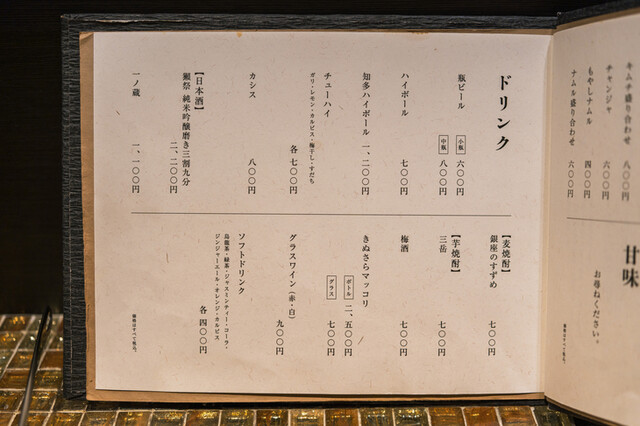 キムチ盛り合わせ 八〇〇円
チャンジャ 六〇〇円
もやしナムル 四〇〇円
ナムル盛り合わせ 六〇〇円
甘味
お尋ねください。
価格はすべて税込。
ドリンク
瓶ビール
小瓶 六〇〇円
中瓶 八〇〇円
ハイボール 七〇〇円
知多ハイボール 一、二〇〇円
チューハイ
ガリ・レモン・カルピス・梅干し・すだち
各 七〇〇円
カシス 八〇〇円
【日本酒】
獺祭 純米吟醸磨き三割九分
二、二〇〇円
一ノ蔵 一、一〇〇円
【麦焼酎】
銀座のすずめ 七〇〇円
【芋焼酎】
三岳 七〇〇円
梅酒 七〇〇円
きぬさらマッコリ
ボトル 二、五〇〇円
グラス 七〇〇円
グラスワイン(赤・白) 九〇〇円
ソフトドリンク
烏龍茶・緑茶・ジャスミンティー・コーラ・
ジンジャーエール・オレンジ・カルピス
各 四〇〇円
価格はすべて税込。